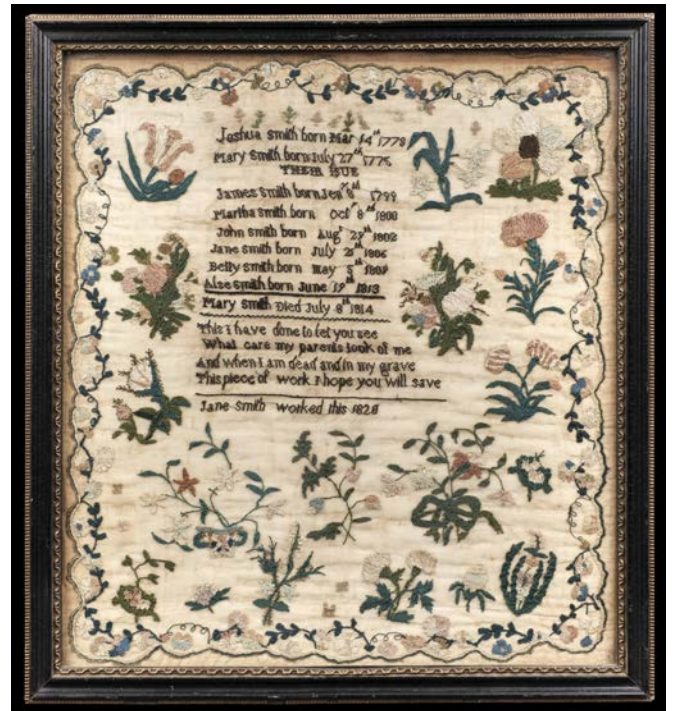 Joshua Smith born Mar 14th 1773
Mary Smith born July 27th 1775
THEIR ISUE
James Smith born Jen 8th 1799
Martha Smith born Oct 8th 1800
John Smith born Aug 29th 1802
Jane Smith born July 25th 1806
Betty Smith born May 5th 1809
Alse Smith born June 19th 1813
Mary Smith Died July 8th 1814
This i have done to let you see
What care my parents took of me
And when I am dead and in my grave
This piece of work I hope you will save
Jane Smith worked this 1820